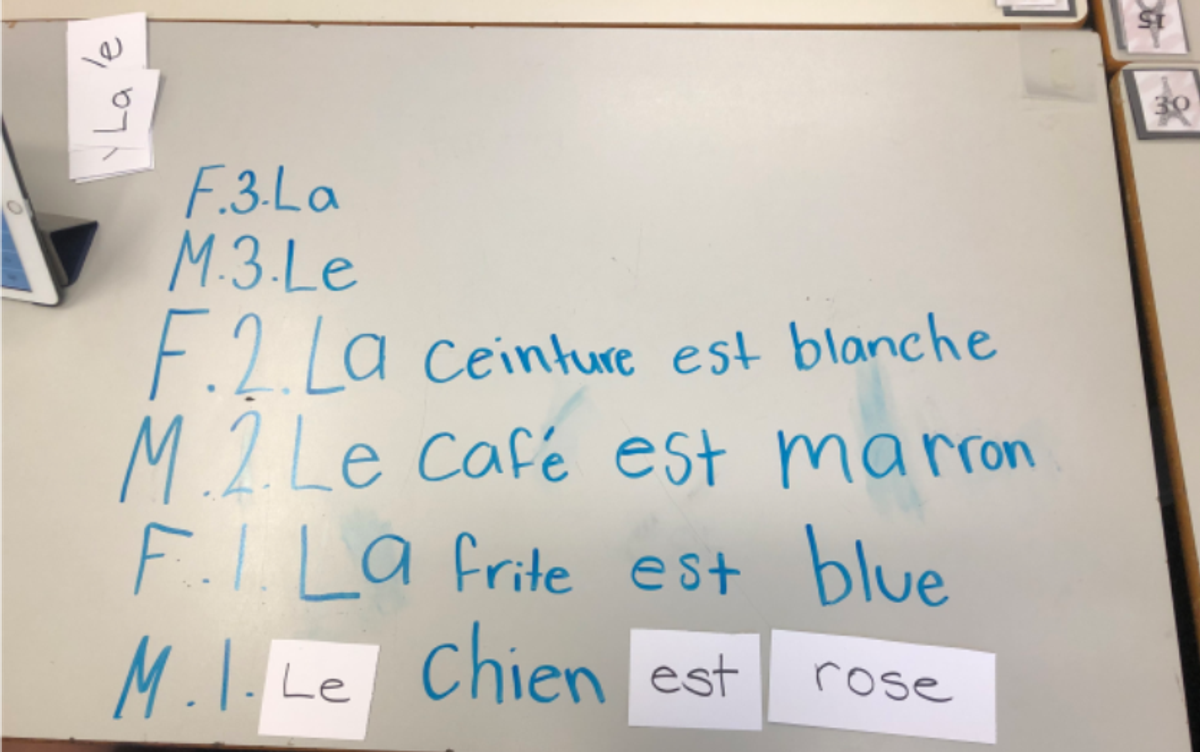 le
La
15
30
F.3.La
M.3.Le
F.2.La ceinture est blanche
M.2.Le café est marron
F.1.La frite est blue
M.1.Le chien est rose